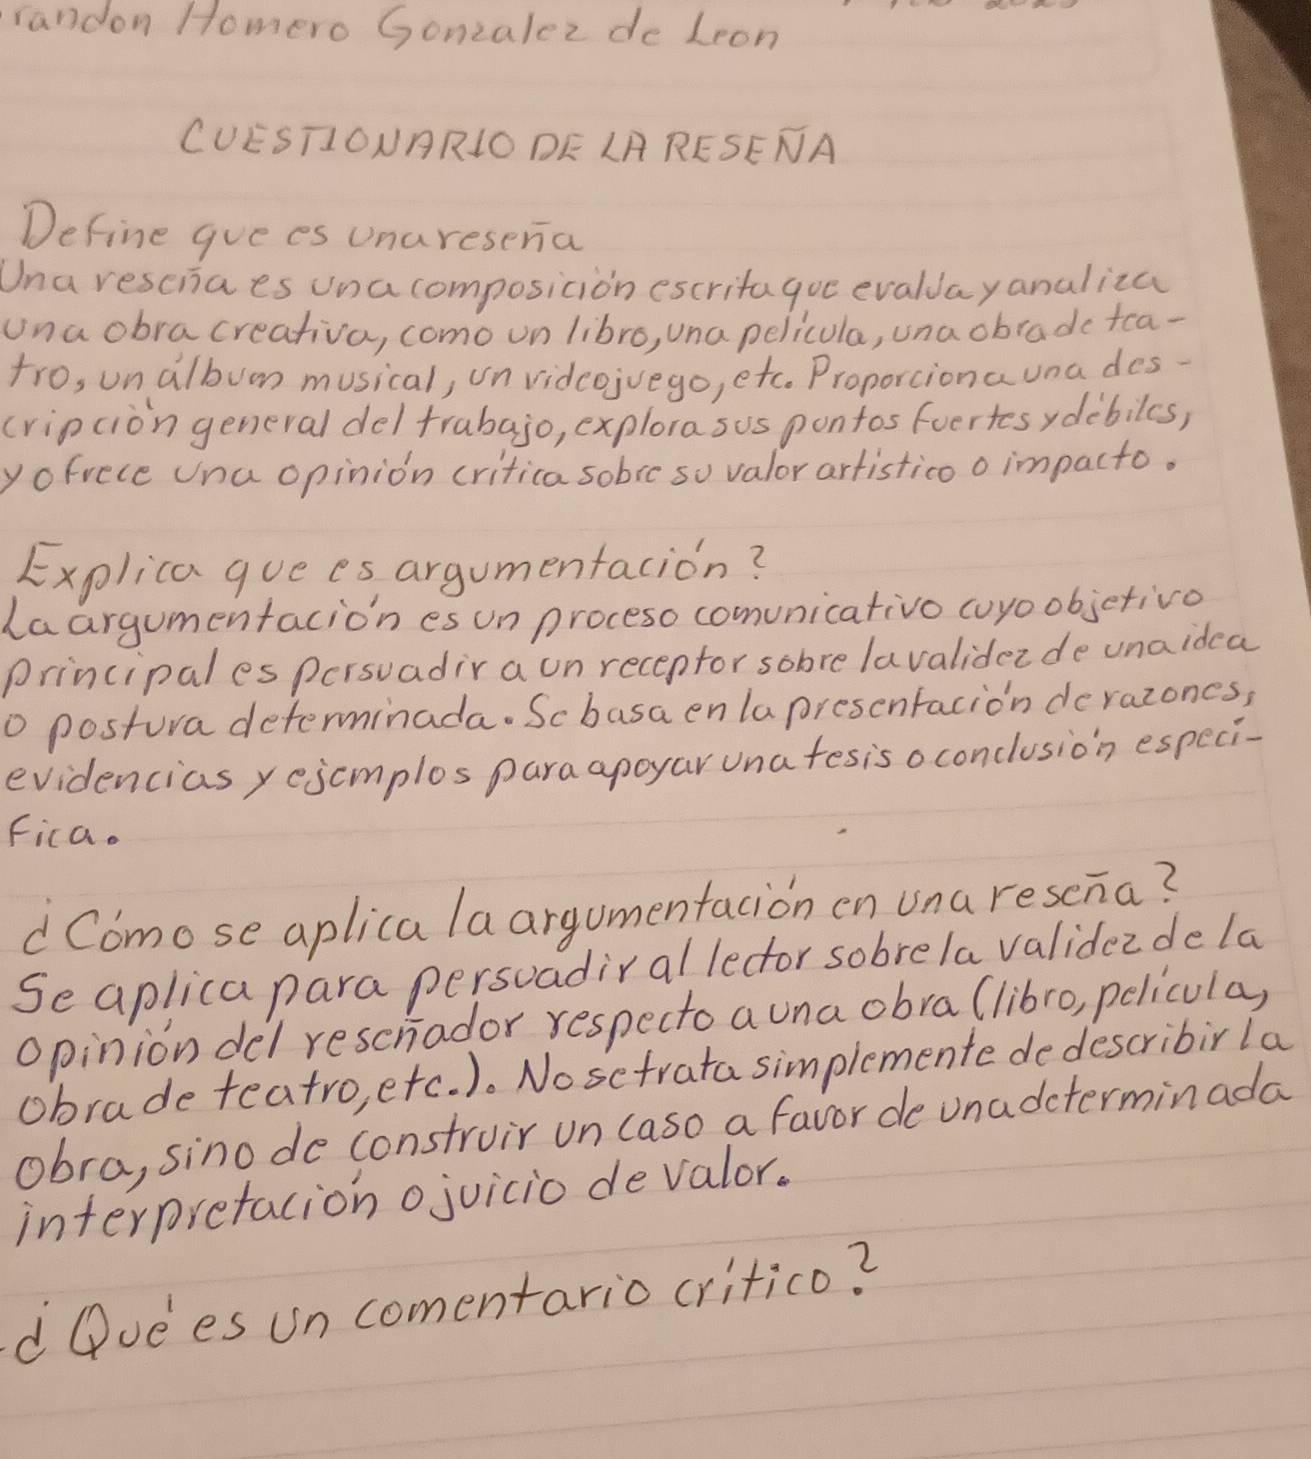 Homero Gonzalez de Leon
CUESTIONARIO DE LA RESEÑA
Define que es una reseña
Una reseña es una composición escrita que evalúa y analiza
una obra creativa, como un libro, una película, una obra de tea-
tro, un álbum musical, un videojuego, etc. Proporciona una des-
cripción general del trabajo, explora sus puntos fuertes y débiles,
y ofrece una opinión crítica sobre su valor artístico o impacto.
Explica que es argumentación?
La argumentación es un proceso comunicativo cuyo objetivo
principal es persuadir a un receptor sobre la validez de una idea
o postura determinada. Se basa en la presentación de razones,
evidencias y ejemplos para apoyar una tesis o conclusión especí-
fica.
¿Cómo se aplica la argumentación en una reseña?
Se aplica para persuadir al lector sobre la validez de la
opinión del reseñador respecto a una obra (libro, película,
obra de teatro, etc.). No se trata simplemente de describir la
obra, sino de construir un caso a favor de una determinada
interpretación o juicio de valor.
¿Qué es un comentario crítico?